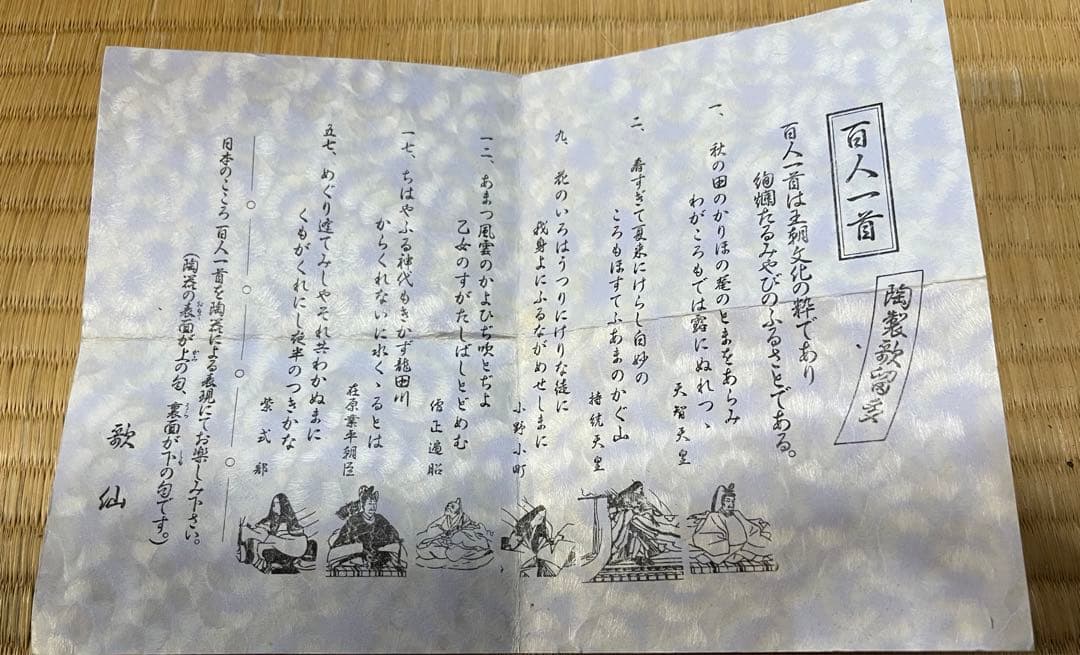 百人一首
陶製歌留多
百人一首は王朝文化の粋であり
絢爛たるみやびのふるさとである。
一、秋の田のかりほの庵のとまをあらみ
わがころもでは露にぬれつゝ
天智天皇
二、春すぎて夏来にけらし白妙の
ころもほすてふあまのかぐ山
持統天皇
九、花のいろはうつりにけりな徒に
我身よにふるながめせしまに
小野小町
一二、あまつ風雲のかよひぢ吹とぢよ
乙女のすがたしばしとどめむ
僧正遍昭
一七、ちはやふる神代もきかず龍田川
からくれないに水くゝるとは
在原業平朝臣
五七、めぐり逢てみしやそれ共わかぬまに
くもがくれにし夜半のつきかな
紫式部
日本のこころ百人一首を陶器による表現にてお楽しみ下さい。
(陶器の表面が上の句、裏面が下の句です。)
歌仙